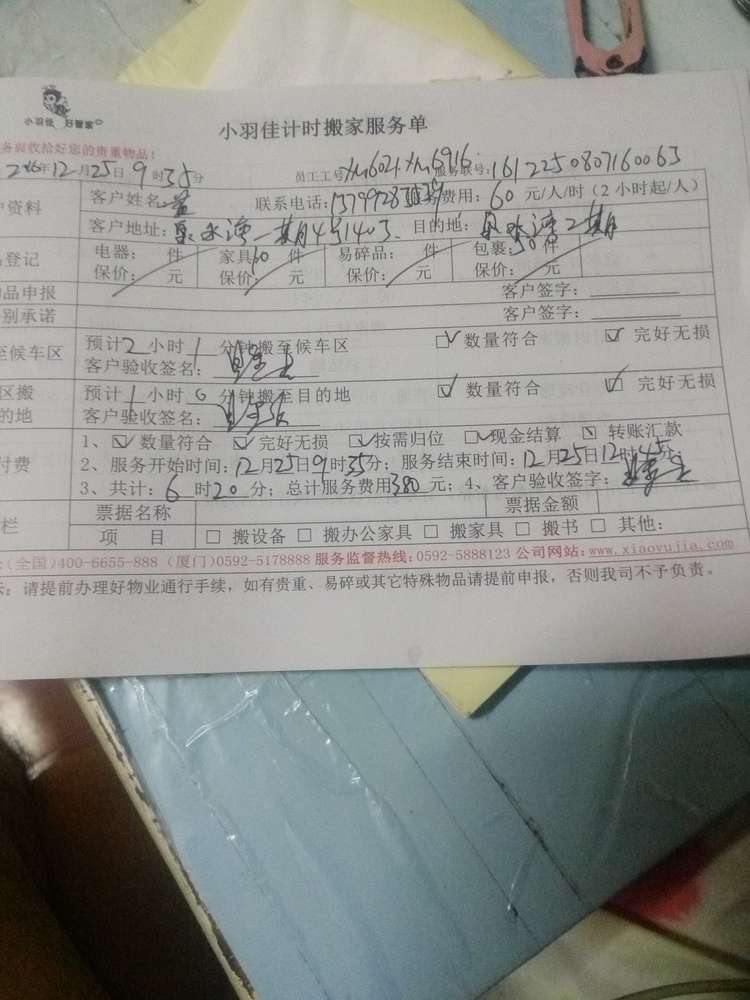 小羽佳 好管家
小羽佳计时搬家服务单
务前收拾好您的贵重物品！
2016年12月25日9时35分 员工工号 服务联号：1612250807160063
户资料 客户姓名： 联系电话： 费用：60元/人/时（2小时起/人）
客户地址： 目的地：
品登记 电器： 件 家具 件 易碎品： 件 包裹： 件
保价： 元 保价： 元 保价： 元 保价： 元
物品申报 客户签字：
别承诺 客户签字：
至候车区 预计2小时 分钟搬至候车区 数量符合 完好无损
客户验收签名：
区搬 预计1小时0分钟搬至目的地 数量符合 完好无损
的地 客户验收签名：
1、数量符合 完好无损 按需归位 现金结算 转账汇款
付费 2、服务开始时间：12月25日9时35分；服务结束时间：12月25日12时45分
3、共计：6时20分；总计服务费用380元；4、客户验收签字：
栏 票据名称 票据金额
项 目 搬设备 搬办公家具 搬家具 搬书 其他：
（全国）400-6655-888（厦门）0592-5178888 服务监督热线：0592-5888123 公司网站：www.xiaoyujia.com
示：请提前办理好物业通行手续，如有贵重、易碎或其它特殊物品请提前申报，否则我司不予负责。